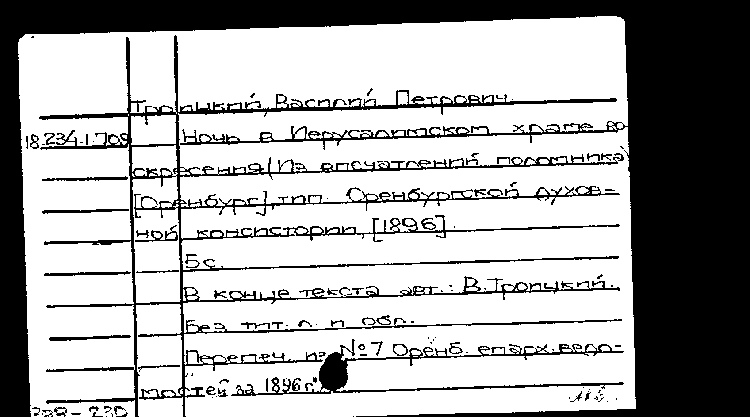 Троицкий, Василий Петрович.
18.234.1.709 Ночь в Иерусалимском храме во-
скресения (Из впечатлений паломника)
[Оренбург], тип. Оренбургской духов=
ной консистории, [1896].
5 с.
В конце текста авт.: В. Троицкий.
Без тит. л. и обл.
Перепеч. из №7 Оренб. епарх. ведо-
мостей за 1896 г.